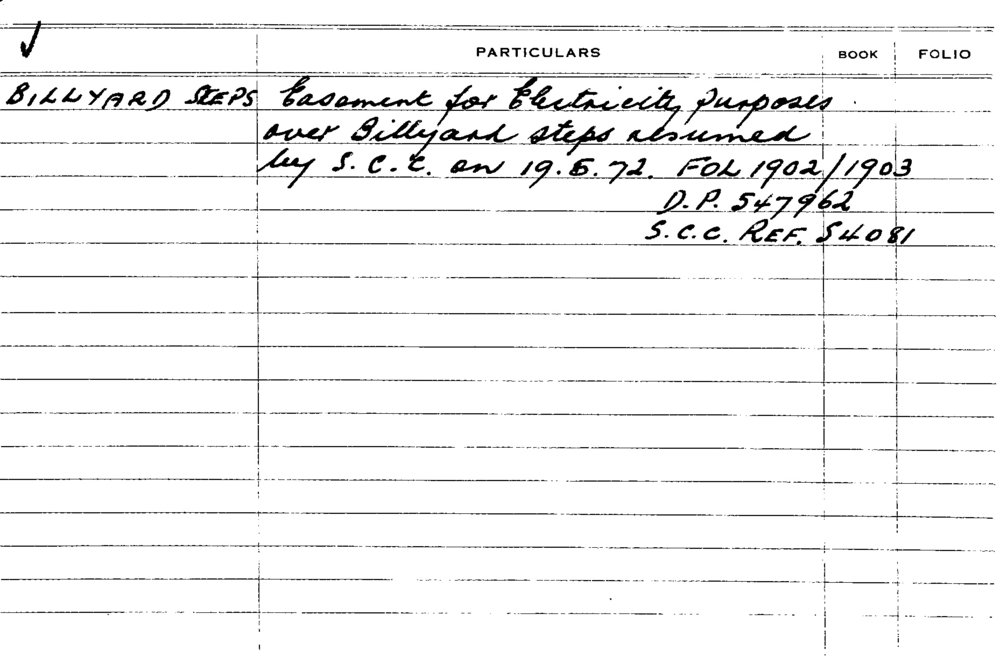 ✓
PARTICULARS BOOK FOLIO
BILLYARD STEPS Easement for Electricity Purposes
over Billyard steps resumed
by S.C.C. on 19.5.72. FOL 1902/1903
D.P. 547962
S.C.C. REF. S4081